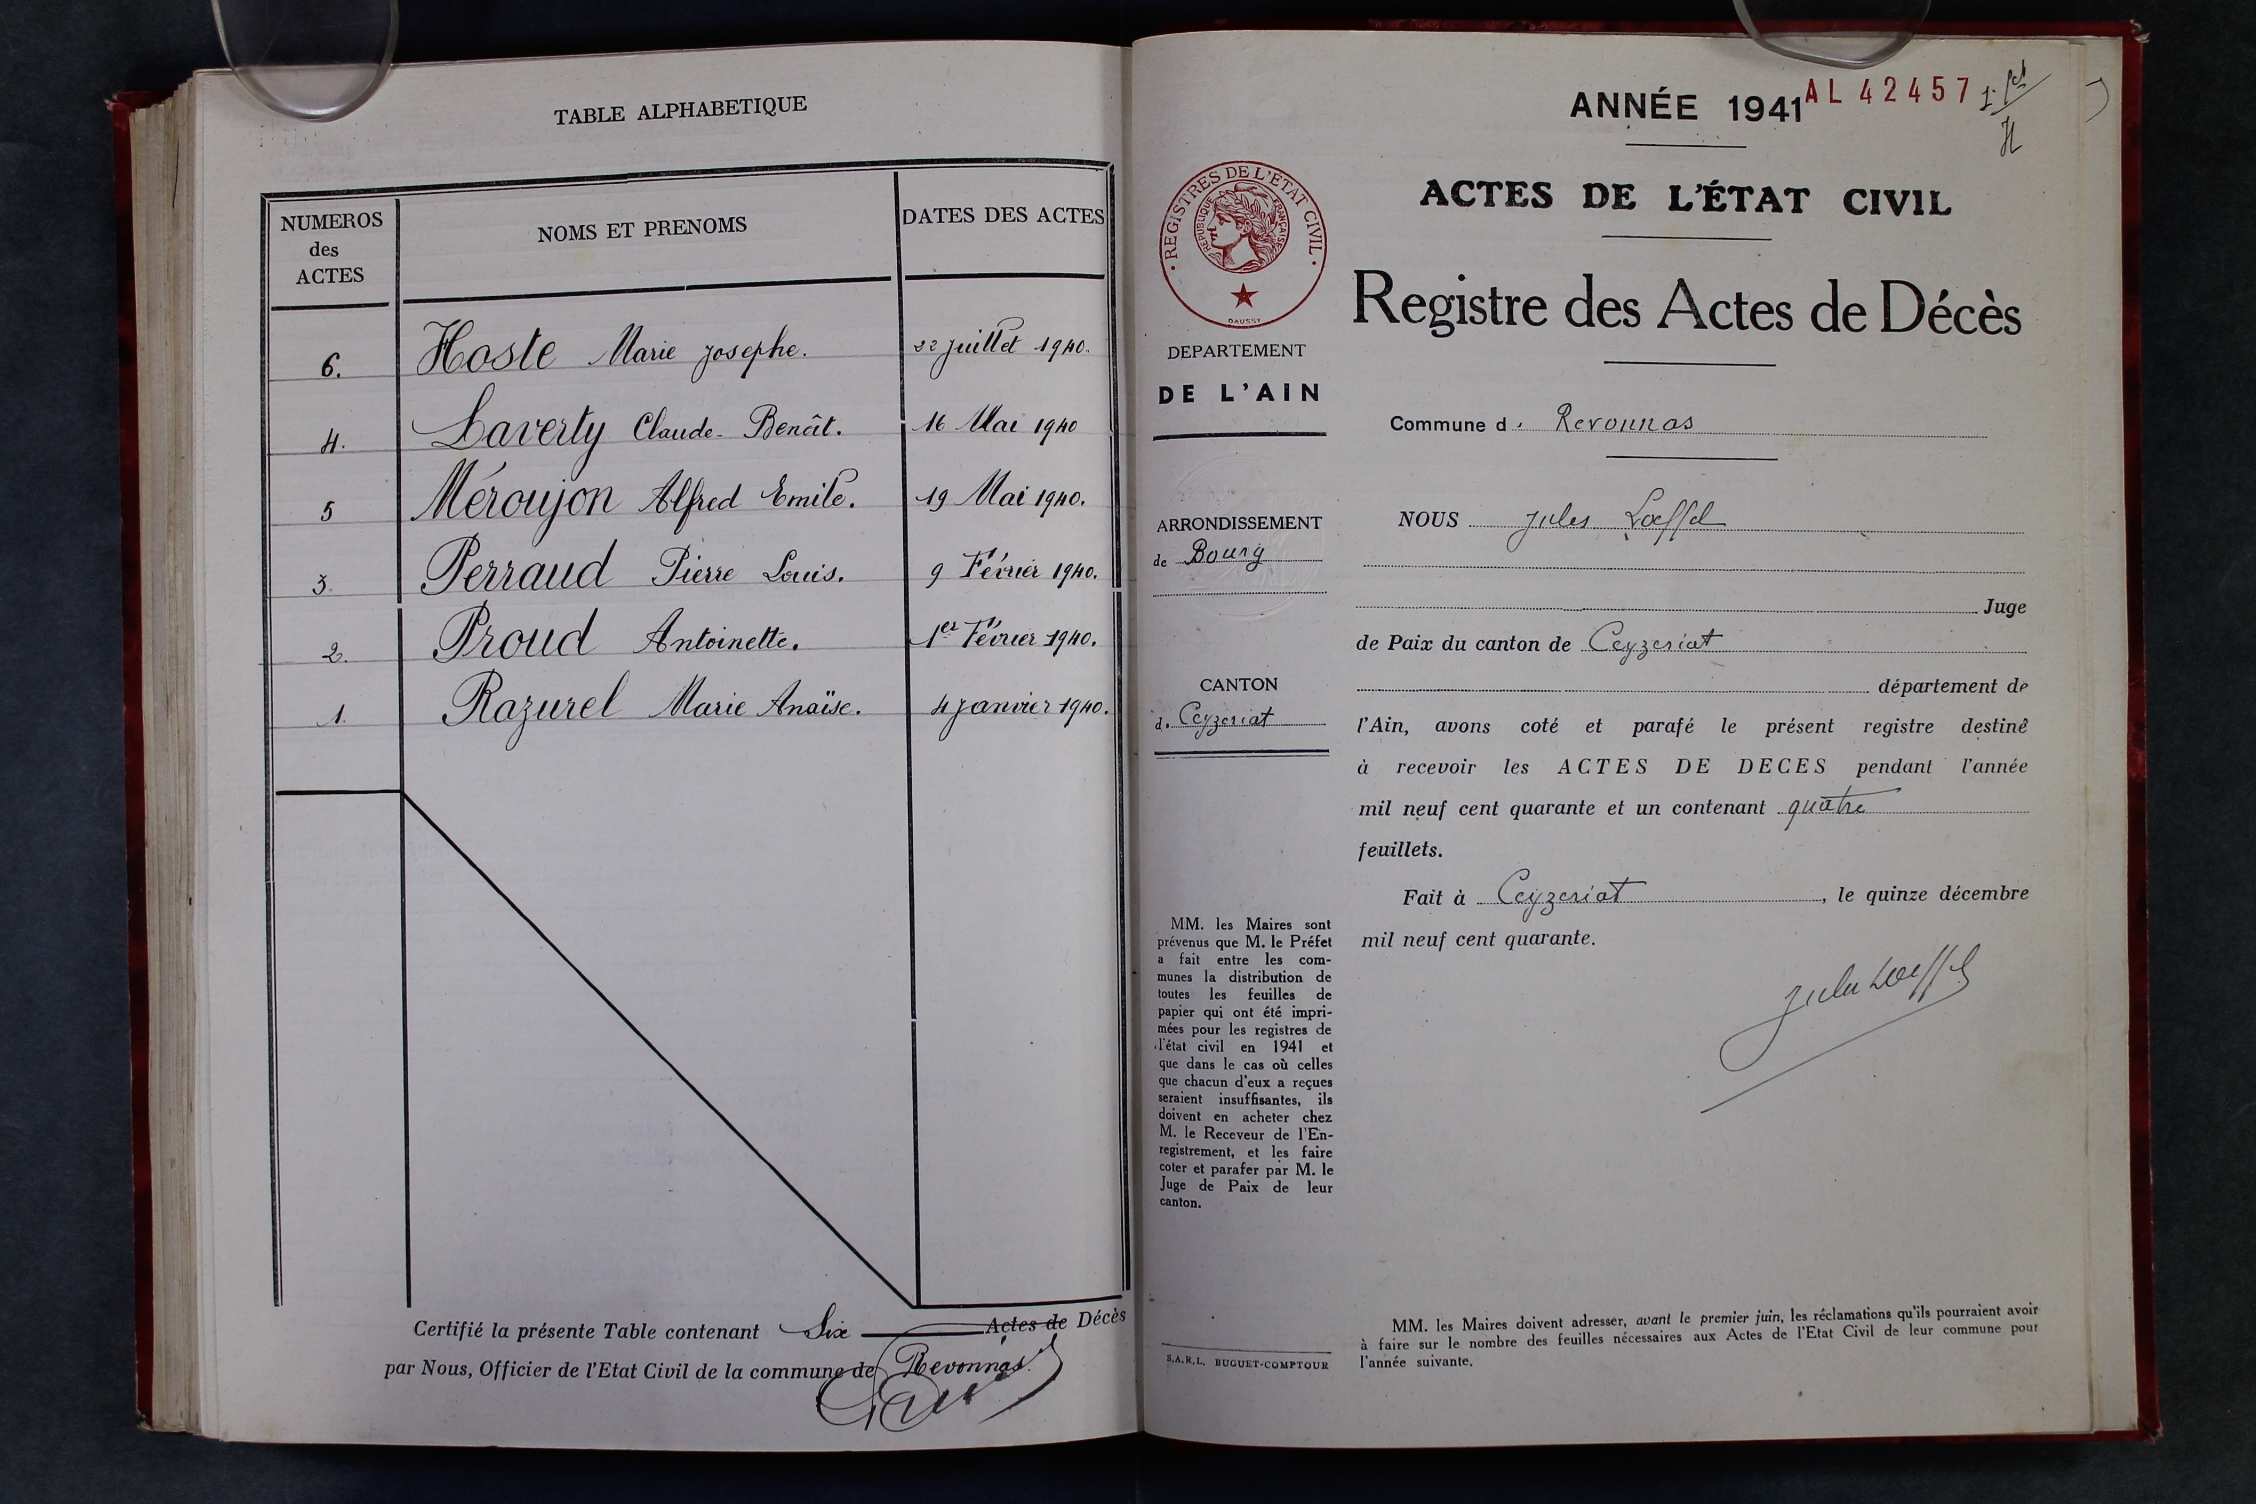 TABLE ALPHABETIQUE
NUMEROS des ACTES
NOMS ET PRENOMS
DATES DES ACTES
6. Hoste Marie Josephe. 22 juillet 1940.
4. Laverty Claude-Benoît. 16 Mai 1940
5 Méroujon Alfred Emile. 19 Mai 1940.
3. Perraud Pierre Louis. 9 Février 1940.
2. Proud Antoinette. 1er Février 1940.
1. Razurel Marie Anaïse. 4 janvier 1940.
Certifié la présente Table contenant Six Actes de Décès
par Nous, Officier de l'Etat Civil de la commune de Revonnas.
ANNÉE 1941
AL 42457
ACTES DE L'ÉTAT CIVIL
Registre des Actes de Décès
REGISTRES DE L'ETAT CIVIL
REPUBLIQUE FRANÇAISE
DAUSSY
DEPARTEMENT
DE L'AIN
ARRONDISSEMENT
de Bourg
CANTON
d. Ceyzeriat
MM. les Maires sont
prévenus que M. le Préfet
a fait entre les com-
munes la distribution de
toutes les feuilles de
papier qui ont été impri-
mées pour les registres de
l'état civil en 1941 et
que dans le cas où celles
que chacun d'eux a reçues
seraient insuffisantes, ils
doivent en acheter chez
M. le Receveur de l'En-
registrement, et les faire
coter et parafer par M. le
Juge de Paix de leur
canton.
S.A.R.L. BUGUET-COMPTOUR
Commune d. Revonnas
NOUS Jules Loeffel
Juge
de Paix du canton de Ceyzeriat
département de
l'Ain, avons coté et parafé le présent registre destiné
à recevoir les ACTES DE DECES pendant l'année
mil neuf cent quarante et un contenant quatre
feuillets.
Fait à Ceyzeriat, le quinze décembre
mil neuf cent quarante.
Jules Loeffel
MM. les Maires doivent adresser, avant le premier juin, les réclamations qu'ils pourraient avoir
à faire sur le nombre des feuilles nécessaires aux Actes de l'Etat Civil de leur commune pour
l'année suivante.